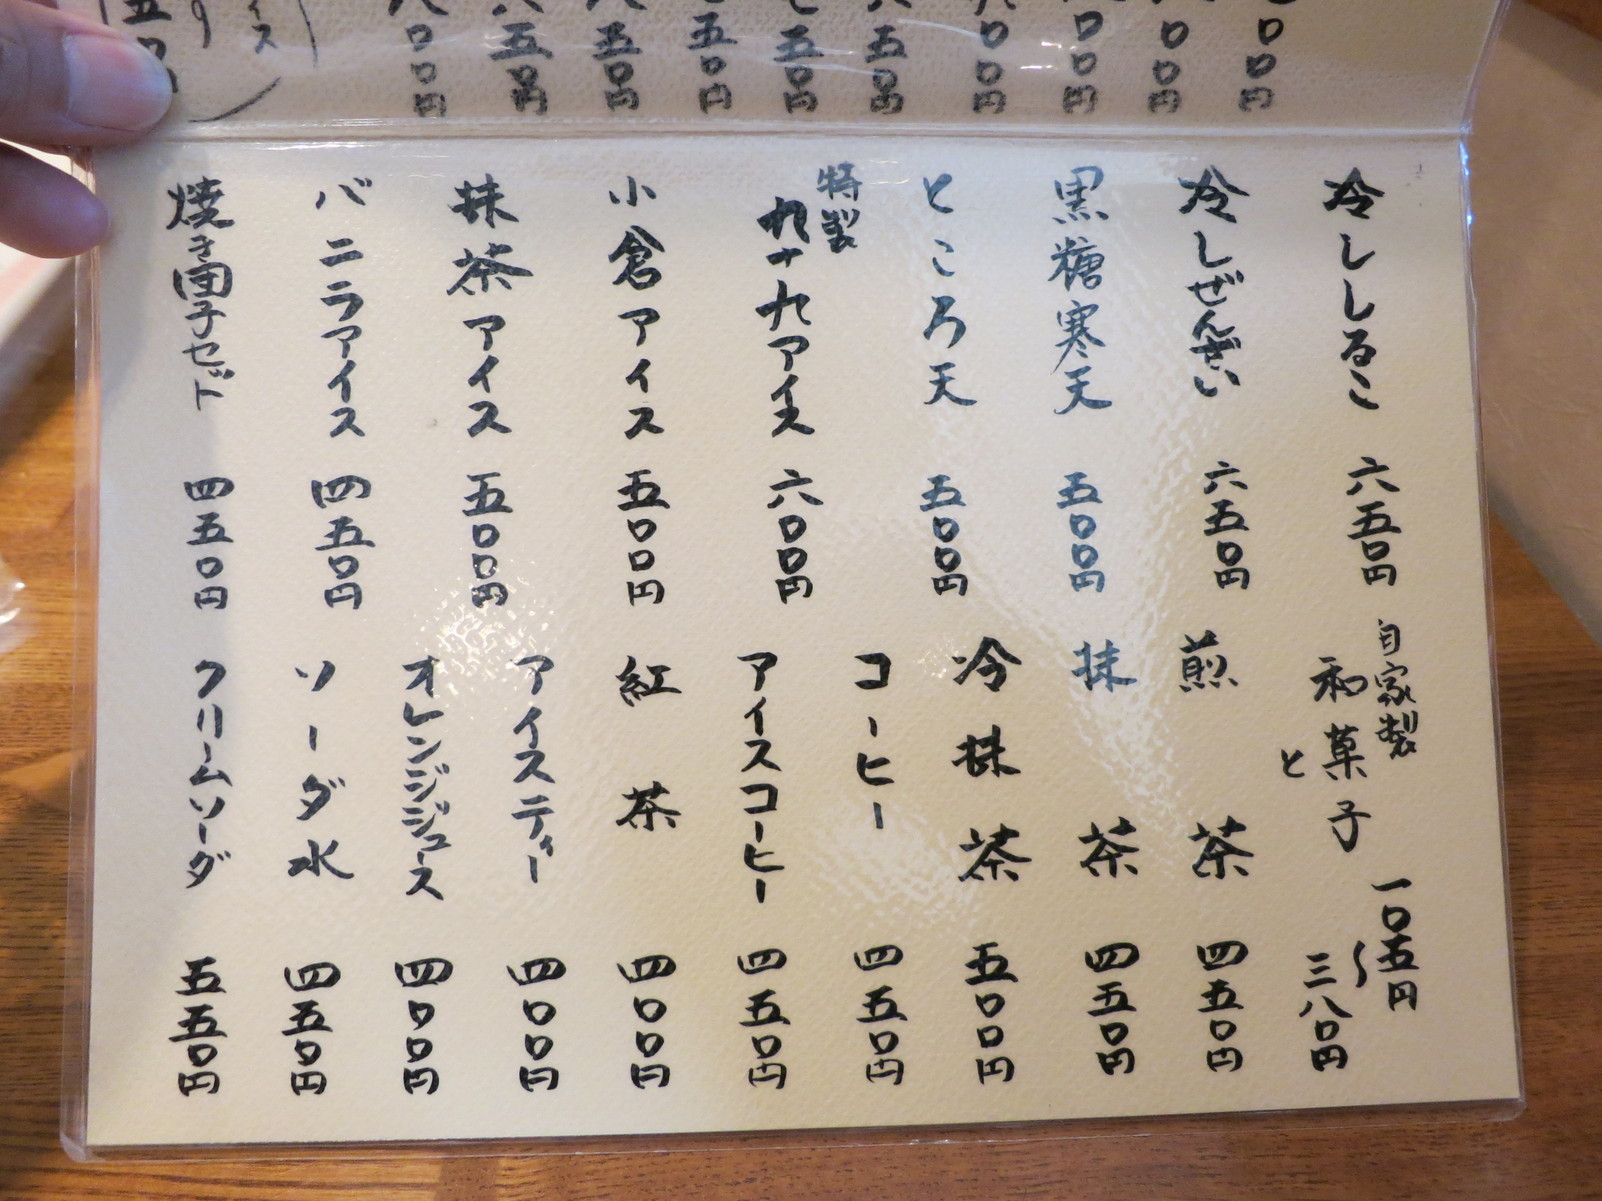 冷ししるこ 六五〇円
冷しぜんざい 六五〇円
黒糖寒天 五〇〇円
ところ天 五〇〇円
特製 九十九アイス 六〇〇円
小倉アイス 五〇〇円
抹茶アイス 五〇〇円
バニラアイス 四五〇円
焼き団子セット 四五〇円
自家製
和菓子 一〇五円〜三八〇円
と
煎茶 四五〇円
抹茶 四五〇円
冷抹茶 五〇〇円
コーヒー 四五〇円
アイスコーヒー 四五〇円
紅茶 四〇〇円
アイスティー 四〇〇円
オレンジジュース 四〇〇円
ソーダ水 四五〇円
クリームソーダ 五五〇円